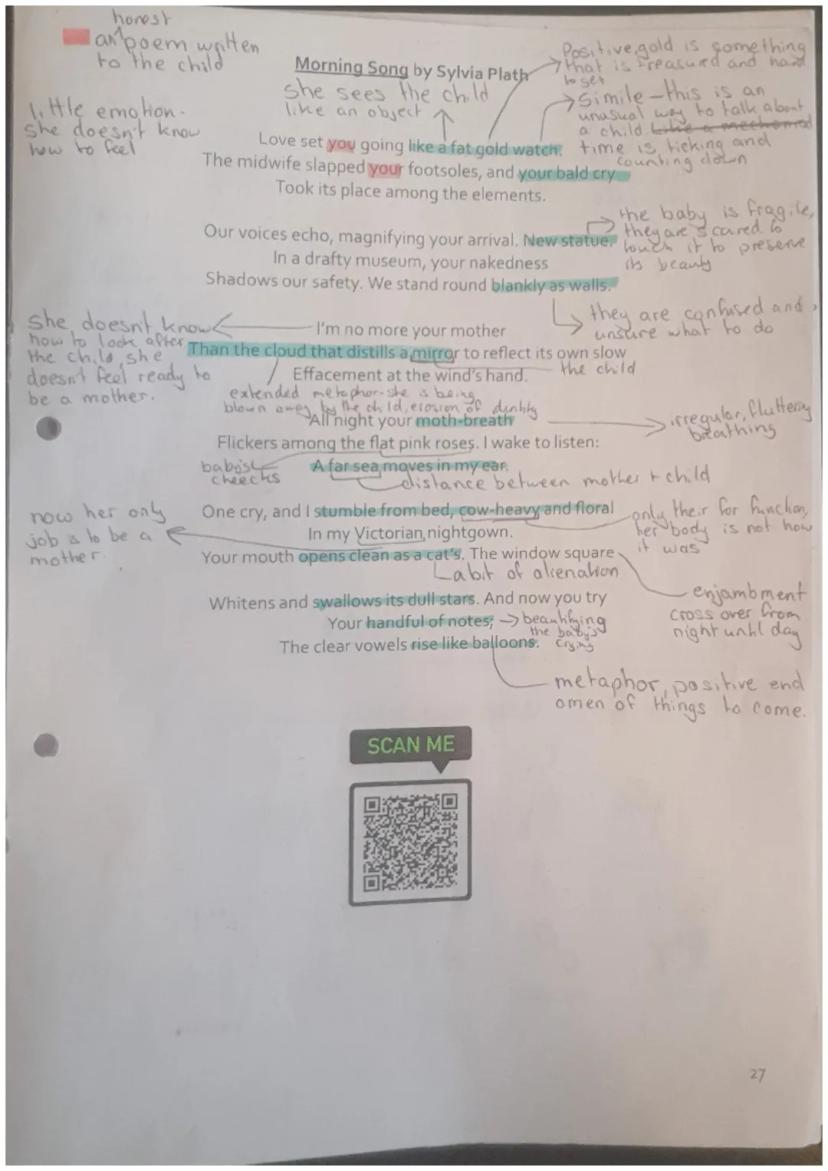 honest
an^poem written
to the child
Morning Song by Sylvia Plath
she sees the child
like an object
Positive, gold is something
that is treasured and hard
to get
Simile - this is an
unusual way to talk about
a child like a mechanical
time is ticking and
counting down
little emotion -
she doesn't know
how to feel
Love set you going like a fat gold watch.
The midwife slapped your footsoles, and your bald cry
Took its place among the elements.
the baby is fragile,
they are scared to
touch it to preserve
its beauty
Our voices echo, magnifying your arrival. New statue.
In a drafty museum, your nakedness
Shadows our safety. We stand round blankly as walls.
they are confused and
unsure what to do
she doesn't know
how to look after
the child, she
doesn't feel ready to
be a mother.
I'm no more your mother
Than the cloud that distills a mirror to reflect its own slow
Effacement at the wind's hand.
the child
extended metaphor - she is being
blown away by the child, erosion of identity
All night your moth-breath
irregular, fluttering
breathing
Flickers among the flat pink roses. I wake to listen:
baby's
cheecks
A far sea moves in my ear.
distance between mother + child
One cry, and I stumble from bed, cow-heavy and floral
In my Victorian nightgown.
only their for function,
her body is not how
it was
now her only
job is to be a
mother.
Your mouth opens clean as a cat's. The window square
a bit of alienation
enjambment
cross over from
night until day
Whitens and swallows its dull stars. And now you try
Your handful of notes;
beautifying
the baby's
crying
The clear vowels rise like balloons.
metaphor, positive end
omen of things to come.
SCAN ME
27